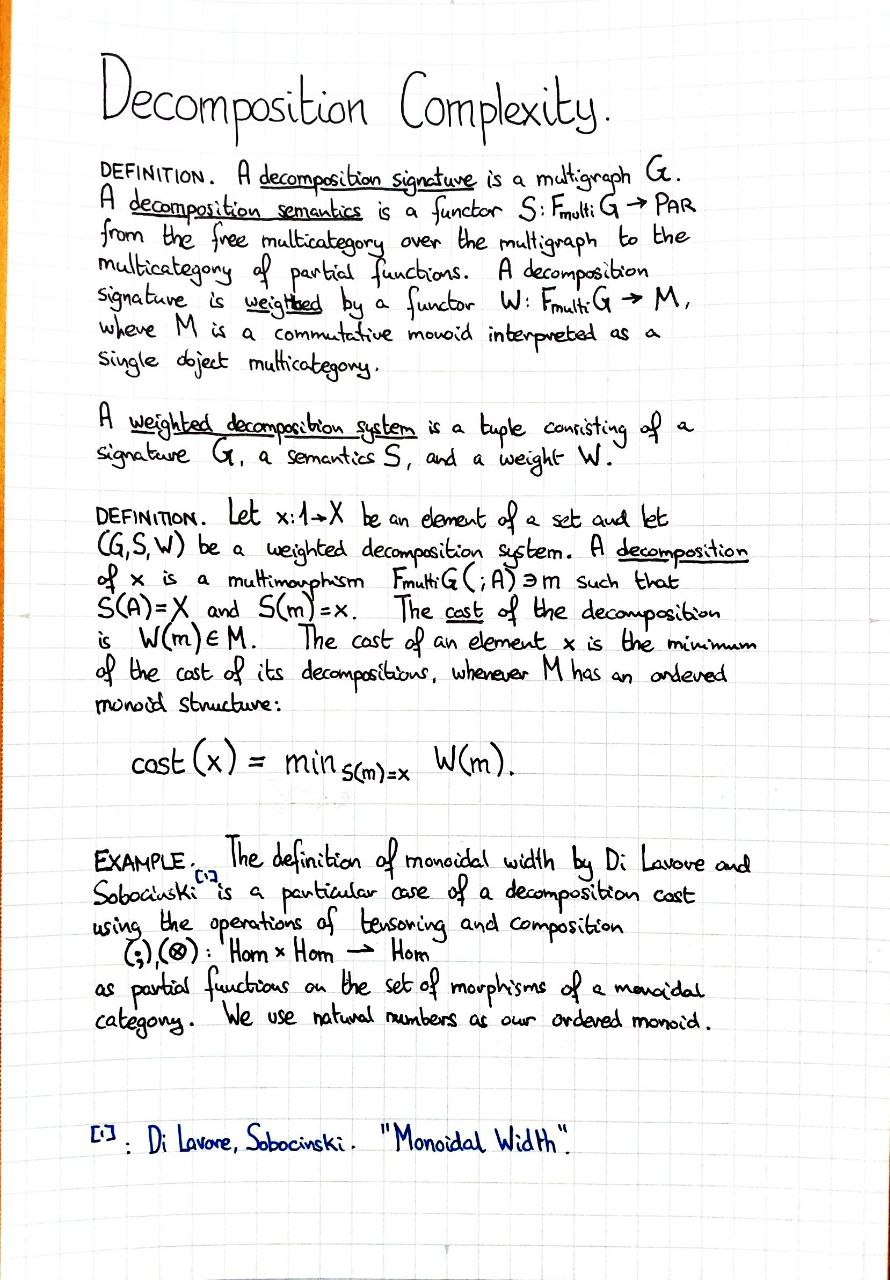 Decomposition Complexity.
DEFINITION. A decomposition signature is a multigraph G.
A decomposition semantics is a functor S: FmultiG → PAR
from the free multicategory over the multigraph to the
multicategory of partial functions. A decomposition
signature is weighted by a functor W: FmultiG → M,
where M is a commutative monoid interpreted as a
single object multicategory.
A weighted decomposition system is a tuple consisting of a
signature G, a semantics S, and a weight W.
DEFINITION. Let x:1→X be an element of a set and let
(G,S,W) be a weighted decomposition system. A decomposition
of x is a multimorphism FmultiG(;A)∋m such that
S(A)=X and S(m)=x. The cost of the decomposition
is W(m)∈M. The cost of an element x is the minimum
of the cost of its decompositions, whenever M has an ordered
monoid structure:
cost(x) = min S(m)=x W(m).
EXAMPLE. The definition of monoidal width by Di Lavore and
Sobocinski [1] is a particular case of a decomposition cost
using the operations of tensoring and composition
(;),(⊗): Hom × Hom → Hom
as partial functions on the set of morphisms of a monoidal
category. We use natural numbers as our ordered monoid.
[1]: Di Lavore, Sobocinski. "Monoidal Width".